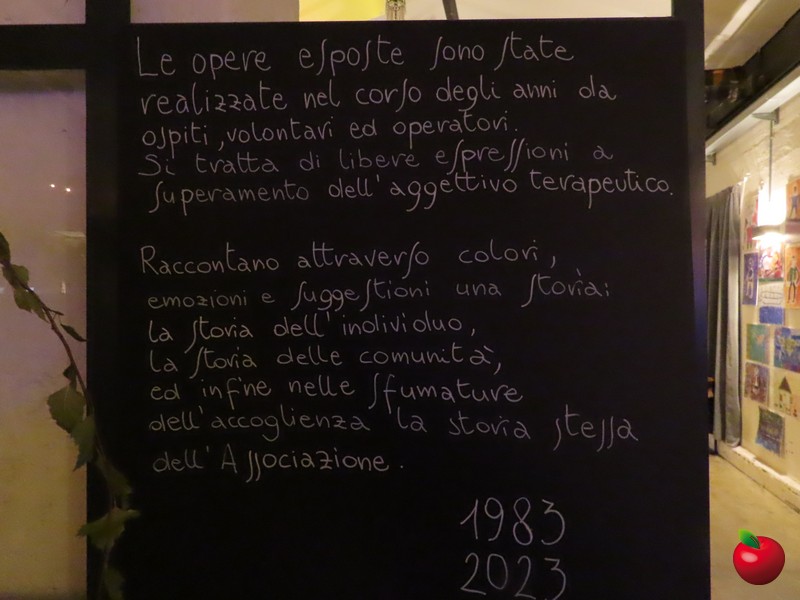 Le opere esposte sono state
realizzate nel corso degli anni da
ospiti, volontari ed operatori.
Si tratta di libere espressioni a
superamento dell'aggettivo terapeutico.
Raccontano attraverso colori,
emozioni e suggestioni una storia:
la storia dell'individuo,
la storia delle comunità,
ed infine nelle sfumature
dell'accoglienza la storia stessa
dell'Associazione.
1983
2023